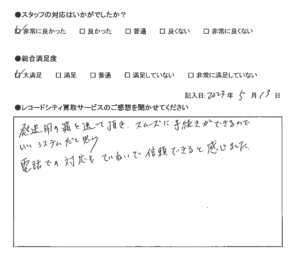 ●スタッフの対応はいかがでしたか？
☑非常に良かった □良かった □普通 □良くない □非常に良くない
●総合満足度
☑大満足 □満足 □普通 □満足していない □非常に満足していない
記入日:2023年 5月 13日
●レコードシティ買取サービスのご感想を聞かせてください
発送用の箱を送って頂き、スムーズに手続きができるので
いいシステムだと思う
電話での対応もていねいで信頼できると感じました